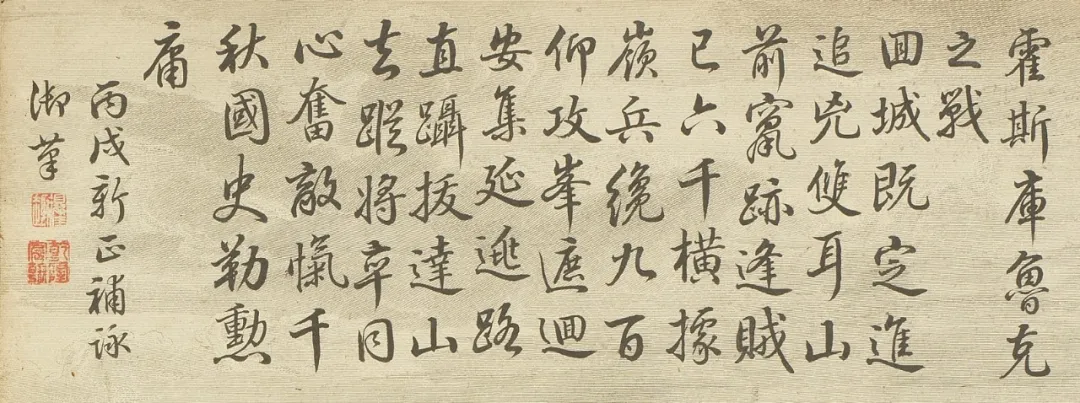 霍斯庫魯克
之戰
回城既定進
追兇雙耳山
前竄跡逢賊
已六千橫據
嶺兵纔九百
仰攻峯遮迴
安集延逃路
直躡拔達山
去蹤將卒同
心奮敵愾千
秋國史勒勲
庸
丙戌新正補詠
御筆